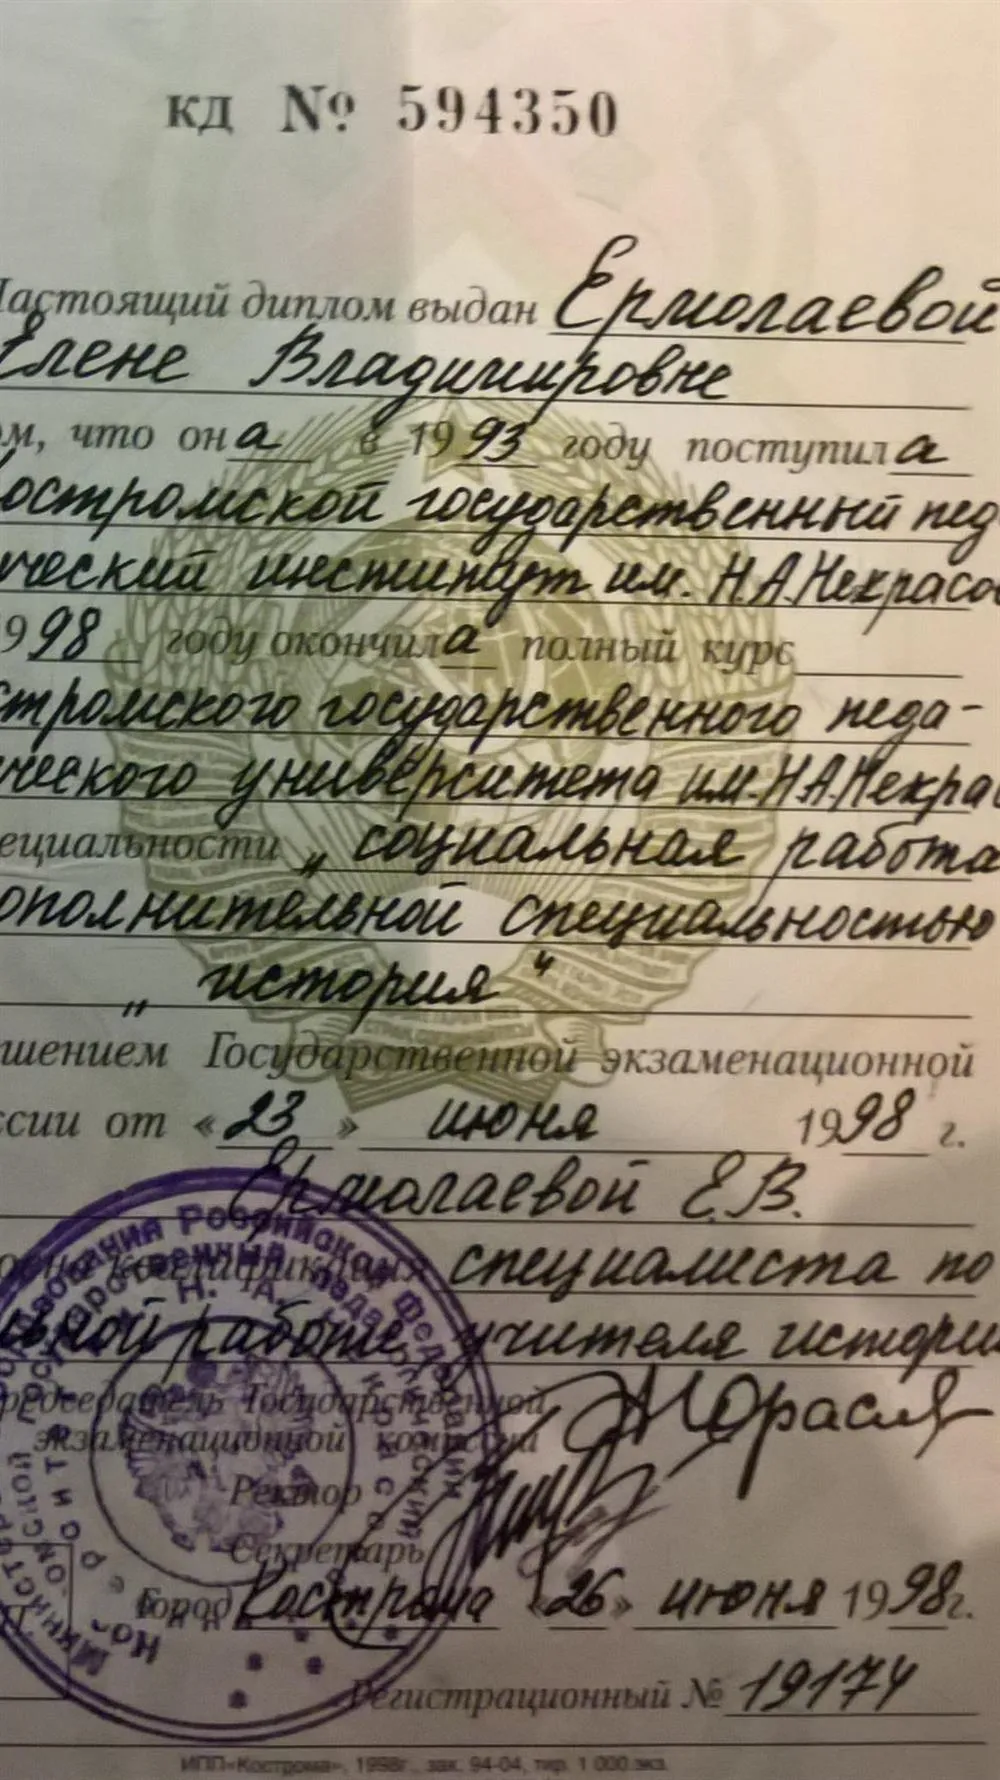 кд № 594350
Настоящий диплом выдан Ермолаевой
Елене Владимировне
ом, что она в 1993 году поступила
Костромской государственный пед
ический институт им. Н.А.Некрасов
1998 году окончила полный курс
стромского государственного педа-
ического университета им.Н.А.Некрас
пециальности „социальная работа
ополнительной специальностью
„история“
ешением Государственной экзаменационной
ссии от «23» июня 1998 г.
Ермолаевой Е.В.
квалификация специалиста по
льной работе, учителя истории
Председатель Государственной
экзаменационной комиссии
Ректор
Секретарь
Город Кострома «26» июня 1998г.
Регистрационный № 19174
ИПП«Кострома», 1998г., зак. 94-04, тир. 1 000 экз.